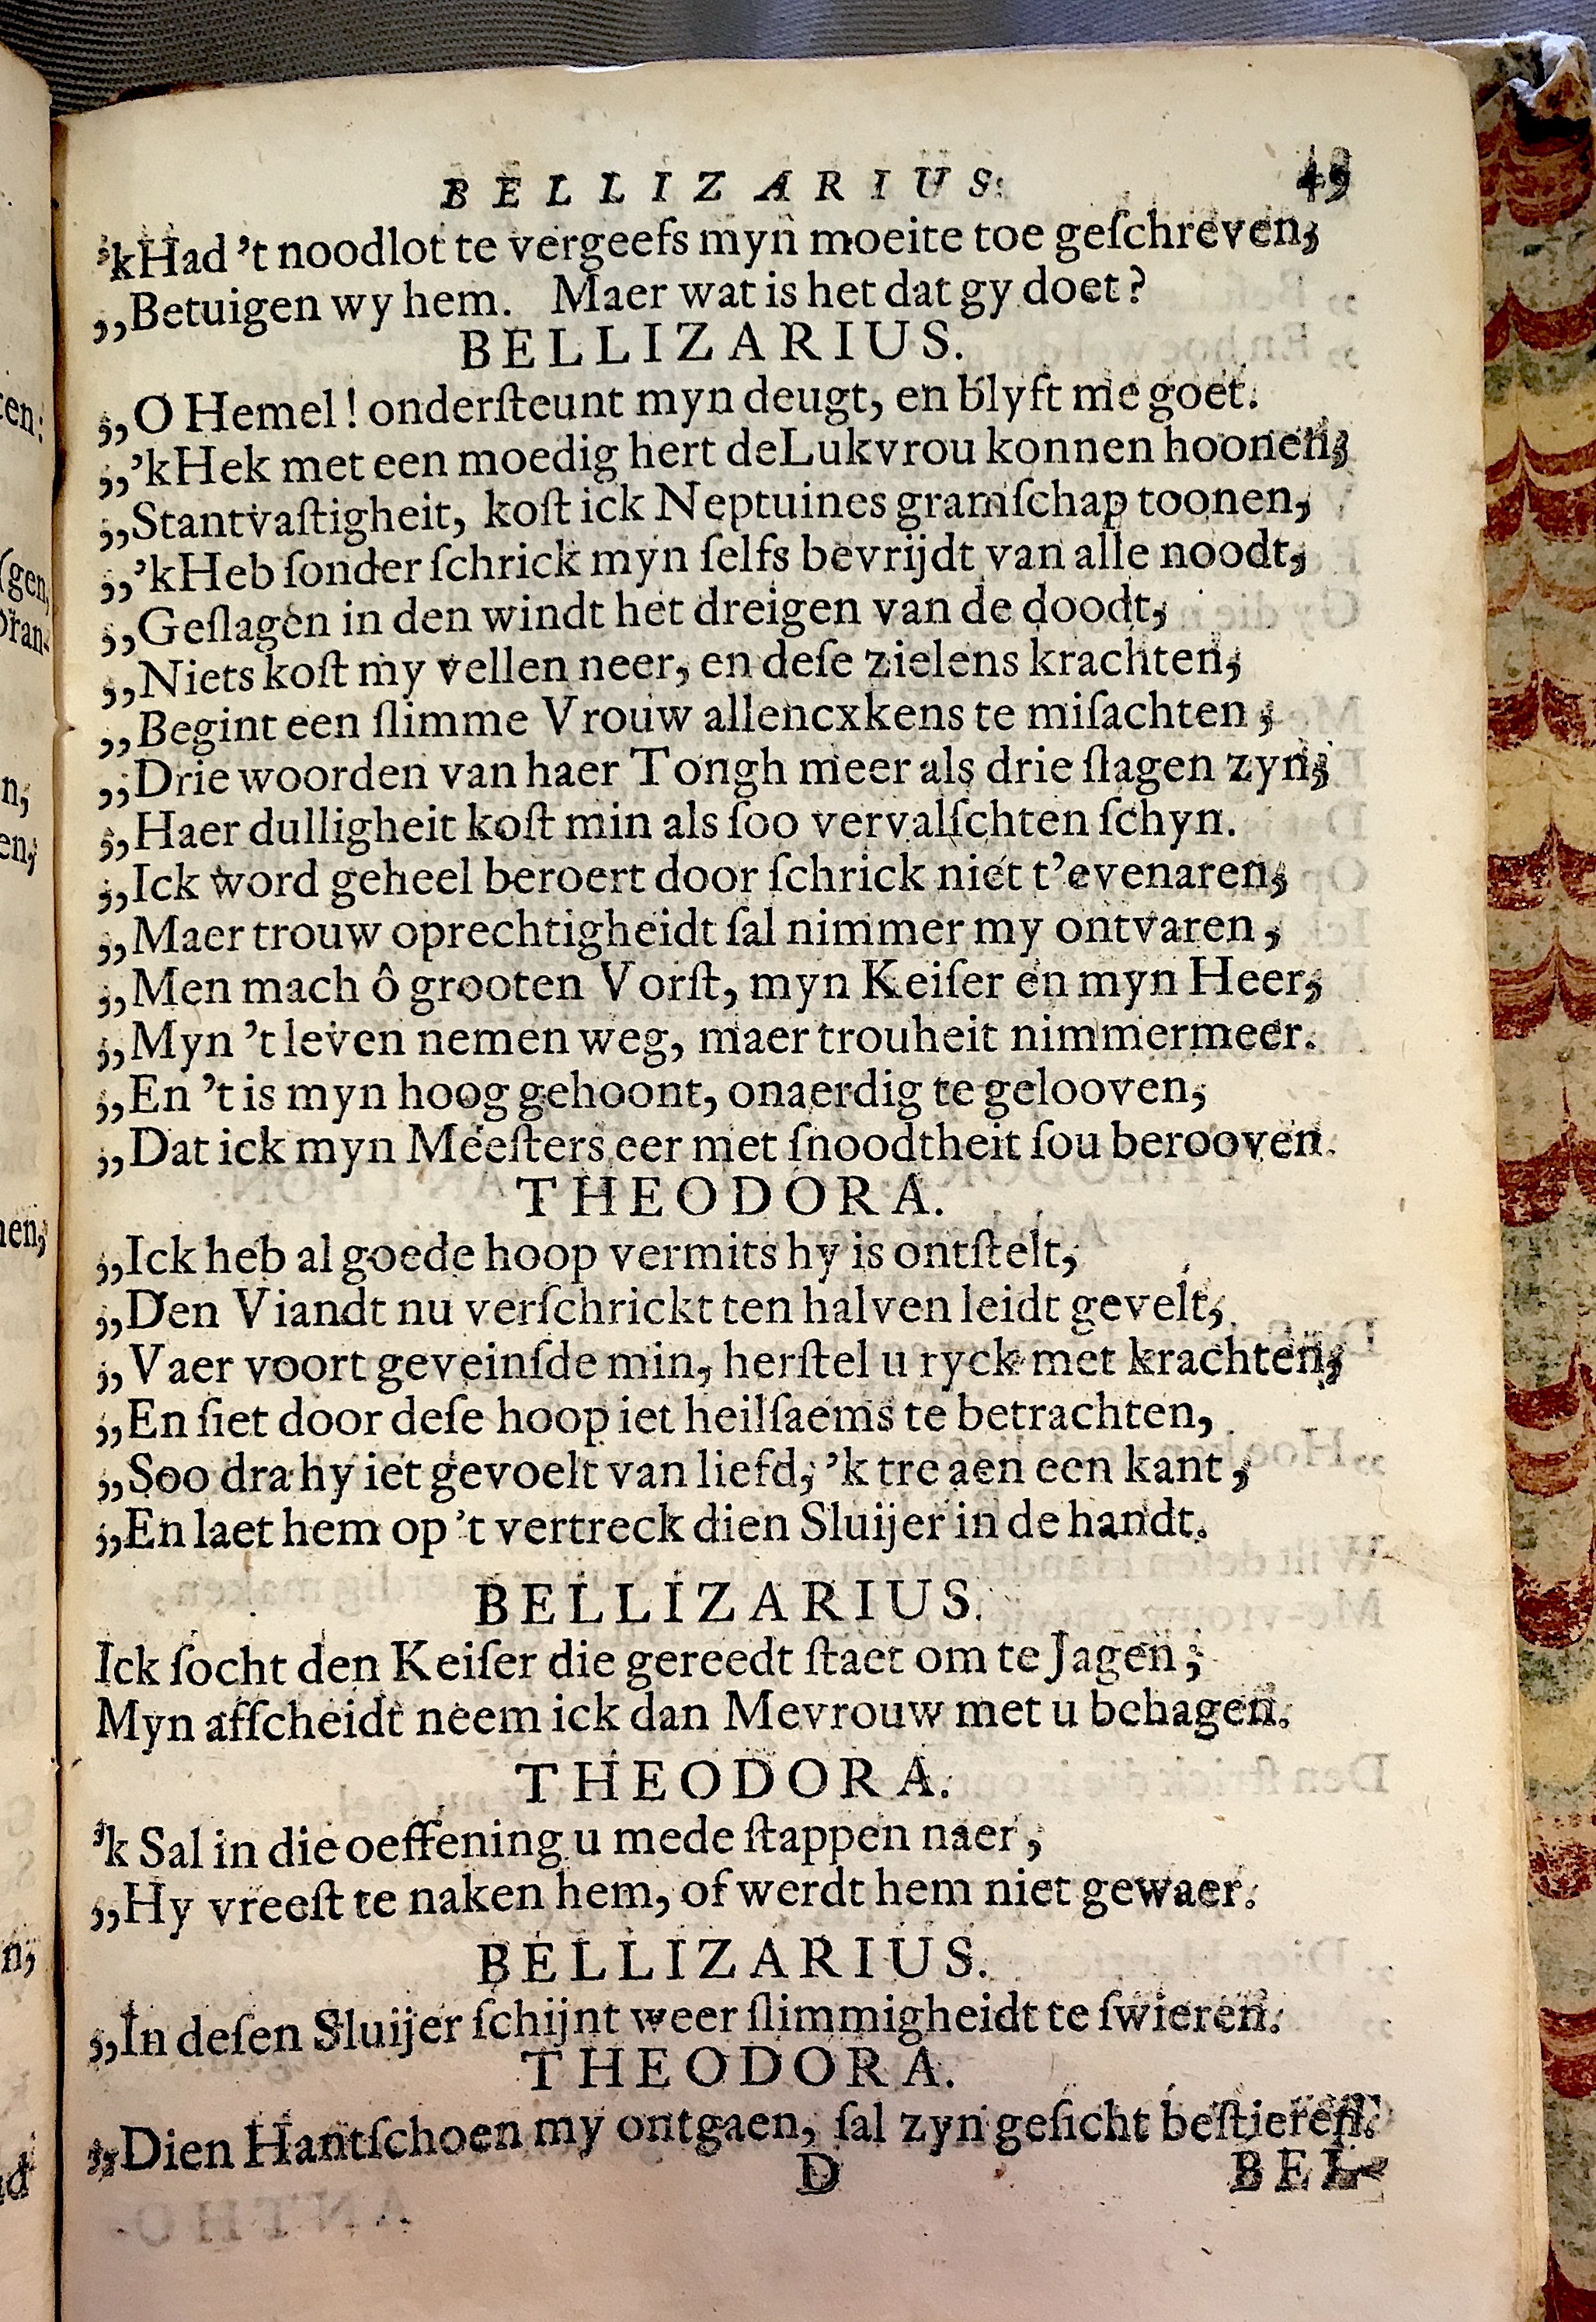 BELLIZARIUS. 49
'kHad 't noodlot te vergeefs myn moeite toe geſchreven,
„Betuigen wy hem. Maer wat is het dat gy doet?
BELLIZARIUS.
„O Hemel! onderſteunt myn deugt, en blyft me goet.
„'kHek met een moedig hert deLukvrou konnen hoonen,
„Stantvaſtigheit, koſt ick Neptuines gramſchap toonen,
„'kHeb ſonder ſchrick myn ſelfs bevrijdt van alle noodt,
„Geſlagen in den windt het dreigen van de doodt,
„Niets koſt my vellen neer, en deſe zielens krachten,
„Begint een ſlimme Vrouw allencxkens te miſachten,
„Drie woorden van haer Tongh meer als drie ſlagen zyn,
„Haer dulligheit koſt min als ſoo vervalſchten ſchyn.
„Ick word geheel beroert door ſchrick niet t'evenaren,
„Maer trouw oprechtigheidt ſal nimmer my ontvaren,
„Men mach ô grooten Vorſt, myn Keiſer en myn Heer,
„Myn 't leven nemen weg, maer trouheit nimmermeer.
„En 't is myn hoog gehoont, onaerdig te gelooven,
„Dat ick myn Meeſters eer met ſnoodtheit ſou berooven.
THEODORA.
„Ick heb al goede hoop vermits hy is ontſtelt,
„Den Viandt nu verſchrickt ten halven leidt gevelt,
„Vaer voort geveinſde min, herſtel u ryck met krachten,
„En ſiet door deſe hoop iet heilſaems te betrachten,
„Soo dra hy iet gevoelt van liefd, 'k tre aen een kant,
„En laet hem op 't vertreck dien Sluijer in de handt.
BELLIZARIUS.
Ick ſocht den Keiſer die gereedt ſtaet om te Jagen;
Myn afſcheidt neem ick dan Mevrouw met u behagen.
THEODORA.
'k Sal in die oeffening u mede ſtappen naer,
„Hy vreeſt te naken hem, of werdt hem niet gewaer.
BELLIZARIUS.
„In deſen Sluijer ſchijnt weer ſlimmigheidt te ſwieren.
THEODORA.
„Dien Hantſchoen my ontgaen, ſal zyn geſicht beſtieren.
D BEL-